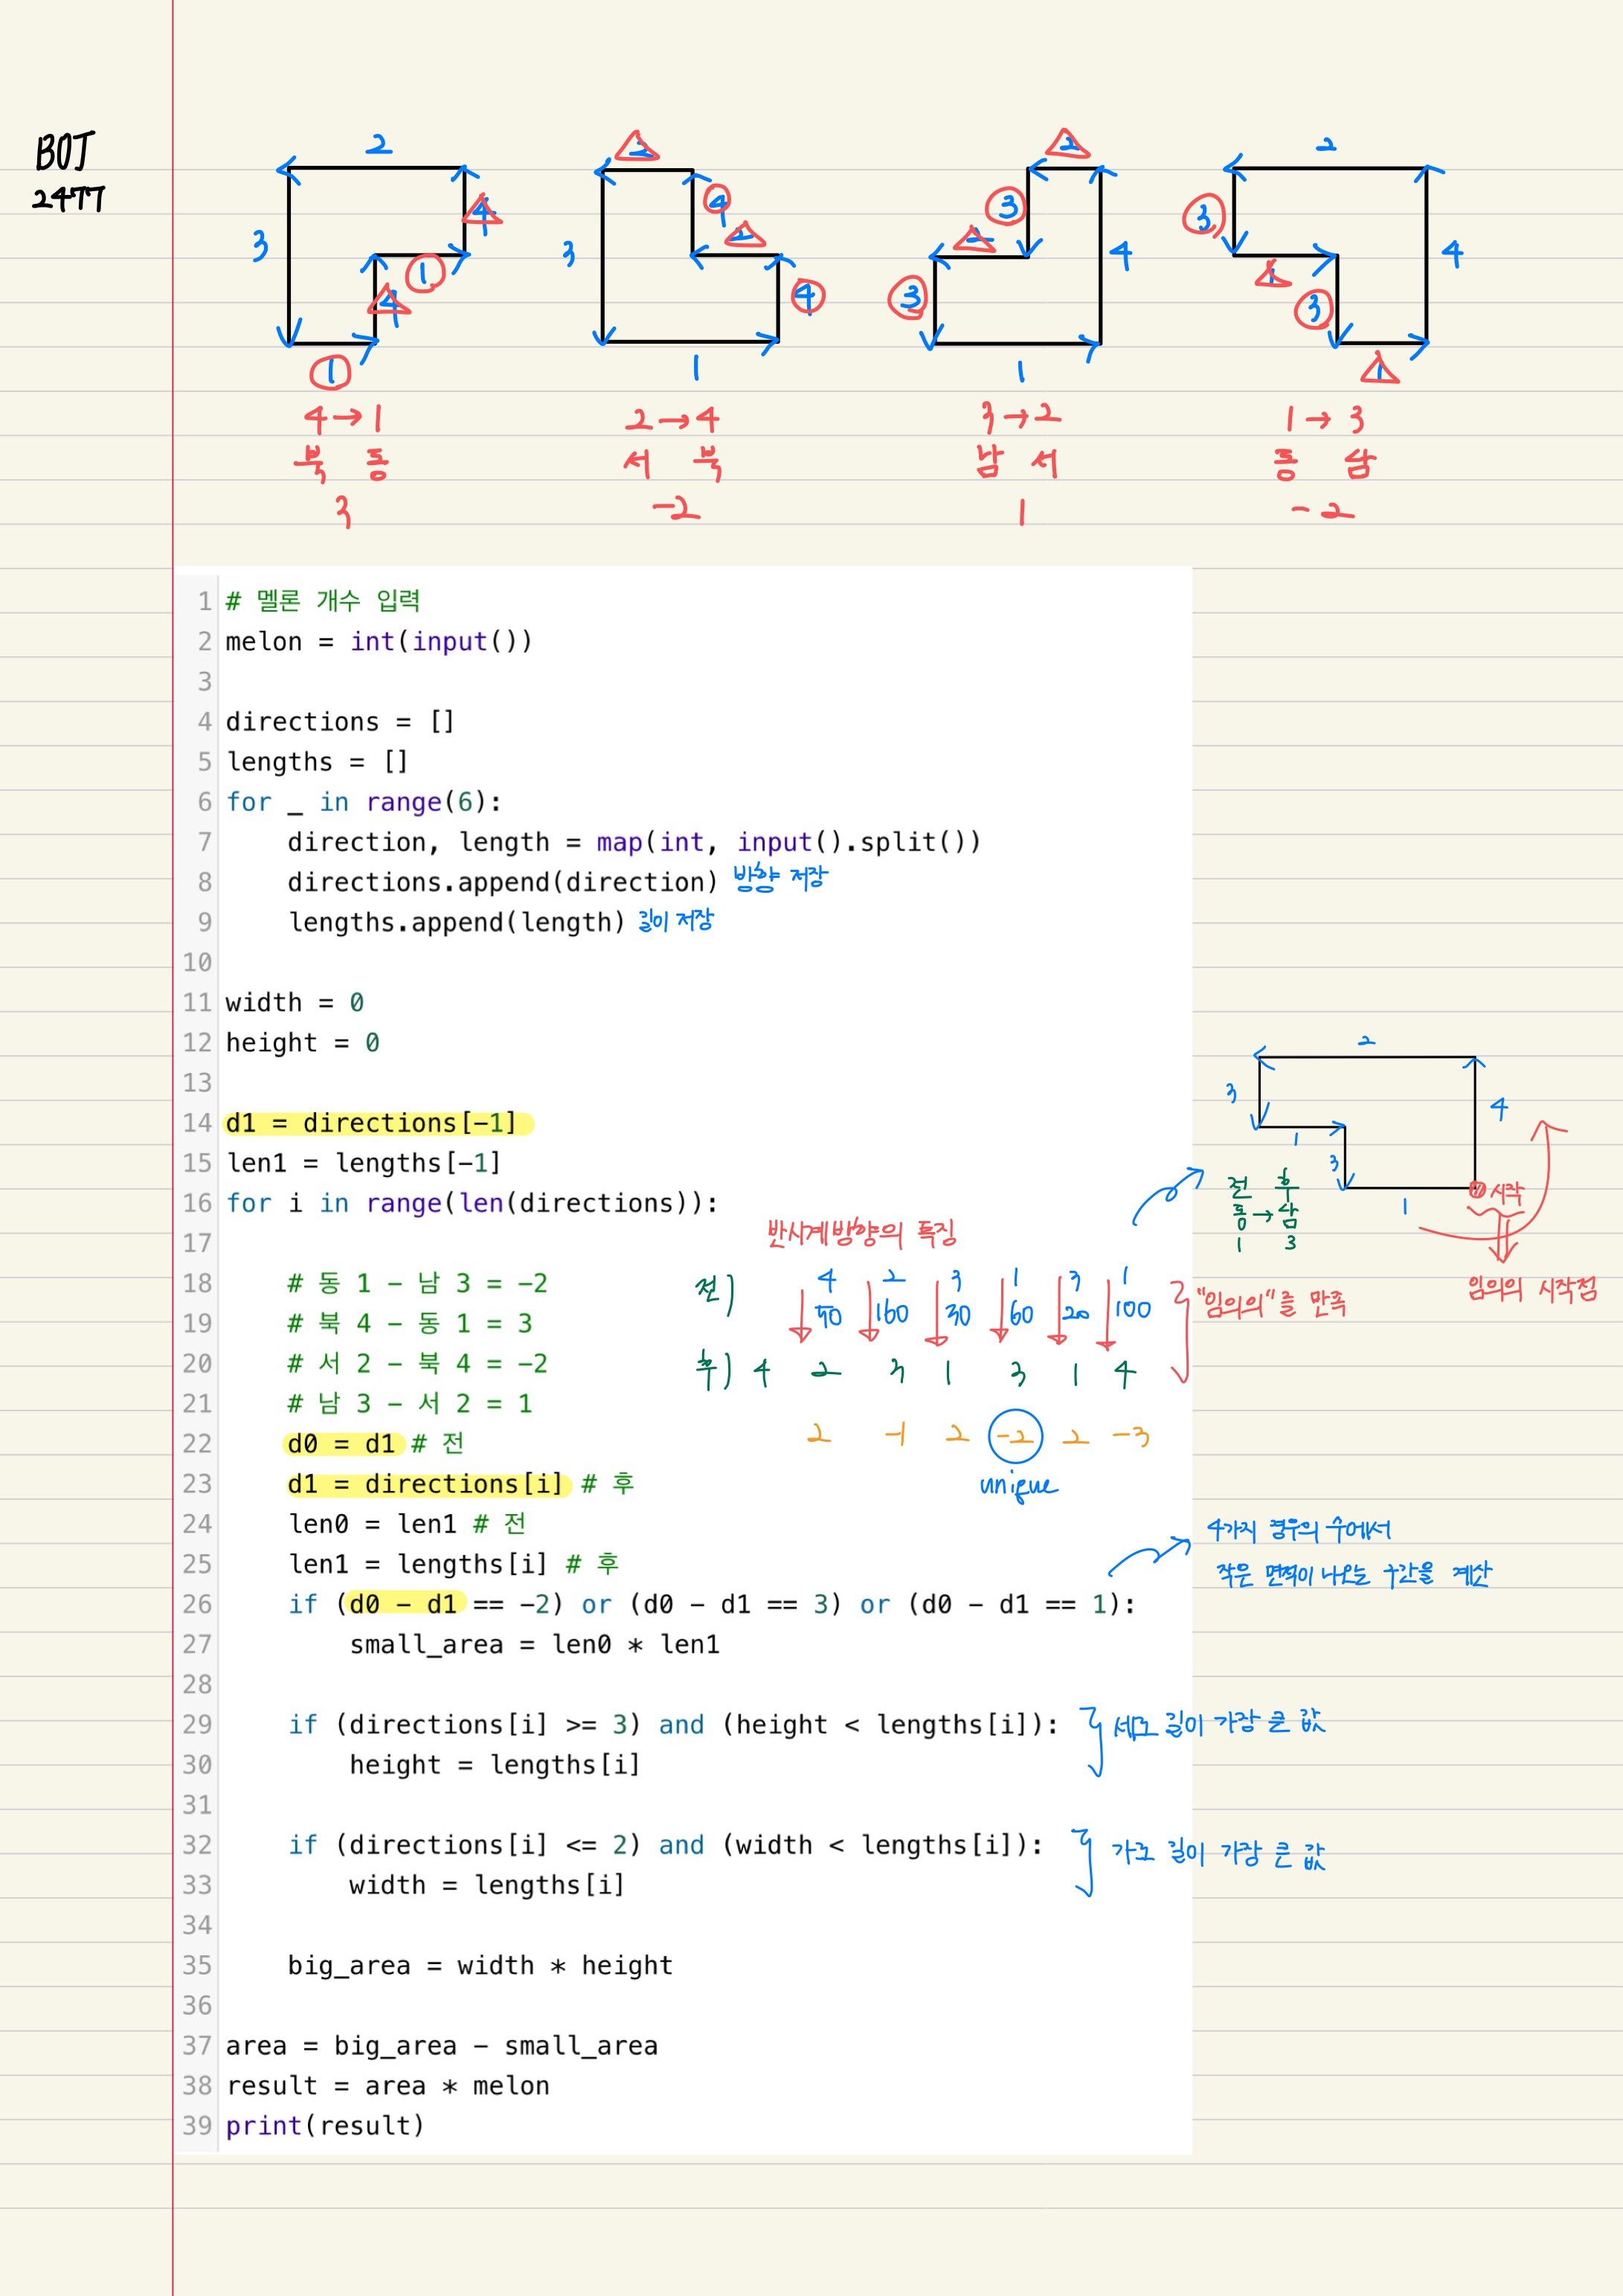 BOJ
2477
2 2 2 2
3 4 1 4 1
3 4 2 4 1
3 2 3 4 1
3 1 3 4 1
4 → 1 2 → 4 3 → 2 1 → 3
북 동 서 북 남 서 동 남
3 -2 1 -2
1 # 멜론 개수 입력
2 melon = int(input())
3
4 directions = []
5 lengths = []
6 for _ in range(6):
7 direction, length = map(int, input().split())
8 directions.append(direction) 방향 저장
9 lengths.append(length) 길이 저장
10
11 width = 0
12 height = 0
13
14 d1 = directions[-1]
15 len1 = lengths[-1]
16 for i in range(len(directions)):
17
18 # 동 1 - 남 3 = -2
19 # 북 4 - 동 1 = 3
20 # 서 2 - 북 4 = -2
21 # 남 3 - 서 2 = 1
22 d0 = d1 # 전
23 d1 = directions[i] # 후
24 len0 = len1 # 전
25 len1 = lengths[i] # 후
26 if (d0 - d1 == -2) or (d0 - d1 == 3) or (d0 - d1 == 1):
27 small_area = len0 * len1
28
29 if (directions[i] >= 3) and (height < lengths[i]):
30 height = lengths[i]
31
32 if (directions[i] <= 2) and (width < lengths[i]):
33 width = lengths[i]
34
35 big_area = width * height
36
37 area = big_area - small_area
38 result = area * melon
39 print(result)
2
3 4
1
3
1
시작
임의의 시작점
전 후
동 → 남
1 3
반시계방향의 특징
전) 4 2 3 1 3 1
50 160 30 60 20 100
후) 4 2 3 1 3 1 4
2 -1 2 -2 2 -3
unique
"임의의"를 만족
4가지 경우의 수에서
작은 면적이 나오는 구간을 계산
세로 길이 가장 큰 값
가로 길이 가장 큰 값